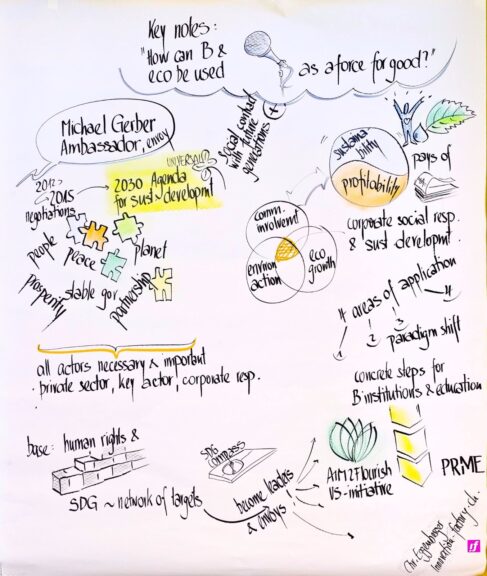 Key notes:
"How can B &
eco be used
as a force for good?"
Michael Gerber
Ambassador, envoy
social contract
with future
generations
+
2012 -
2015
negotiations
UNIVERSAL
2030 Agenda
for sust ~ developmt
people
planet
peace
prosperity
stable gov
partnership
sustaina
bility
profitability
pays off
comm.
involvemt
environ
action
eco
growth
corporate social resp.
& sust developmt.
4 areas of application
1
2
3
4
paradigm shift
all actors necessary & important
. private sector, key actor, corporate resp.
.
concrete steps for
B institutions & education
base: human rights &
SDG ~ network of targets
SDG
compass
become leaders
& employs
AIM2Flourish
US-initiative
PRME